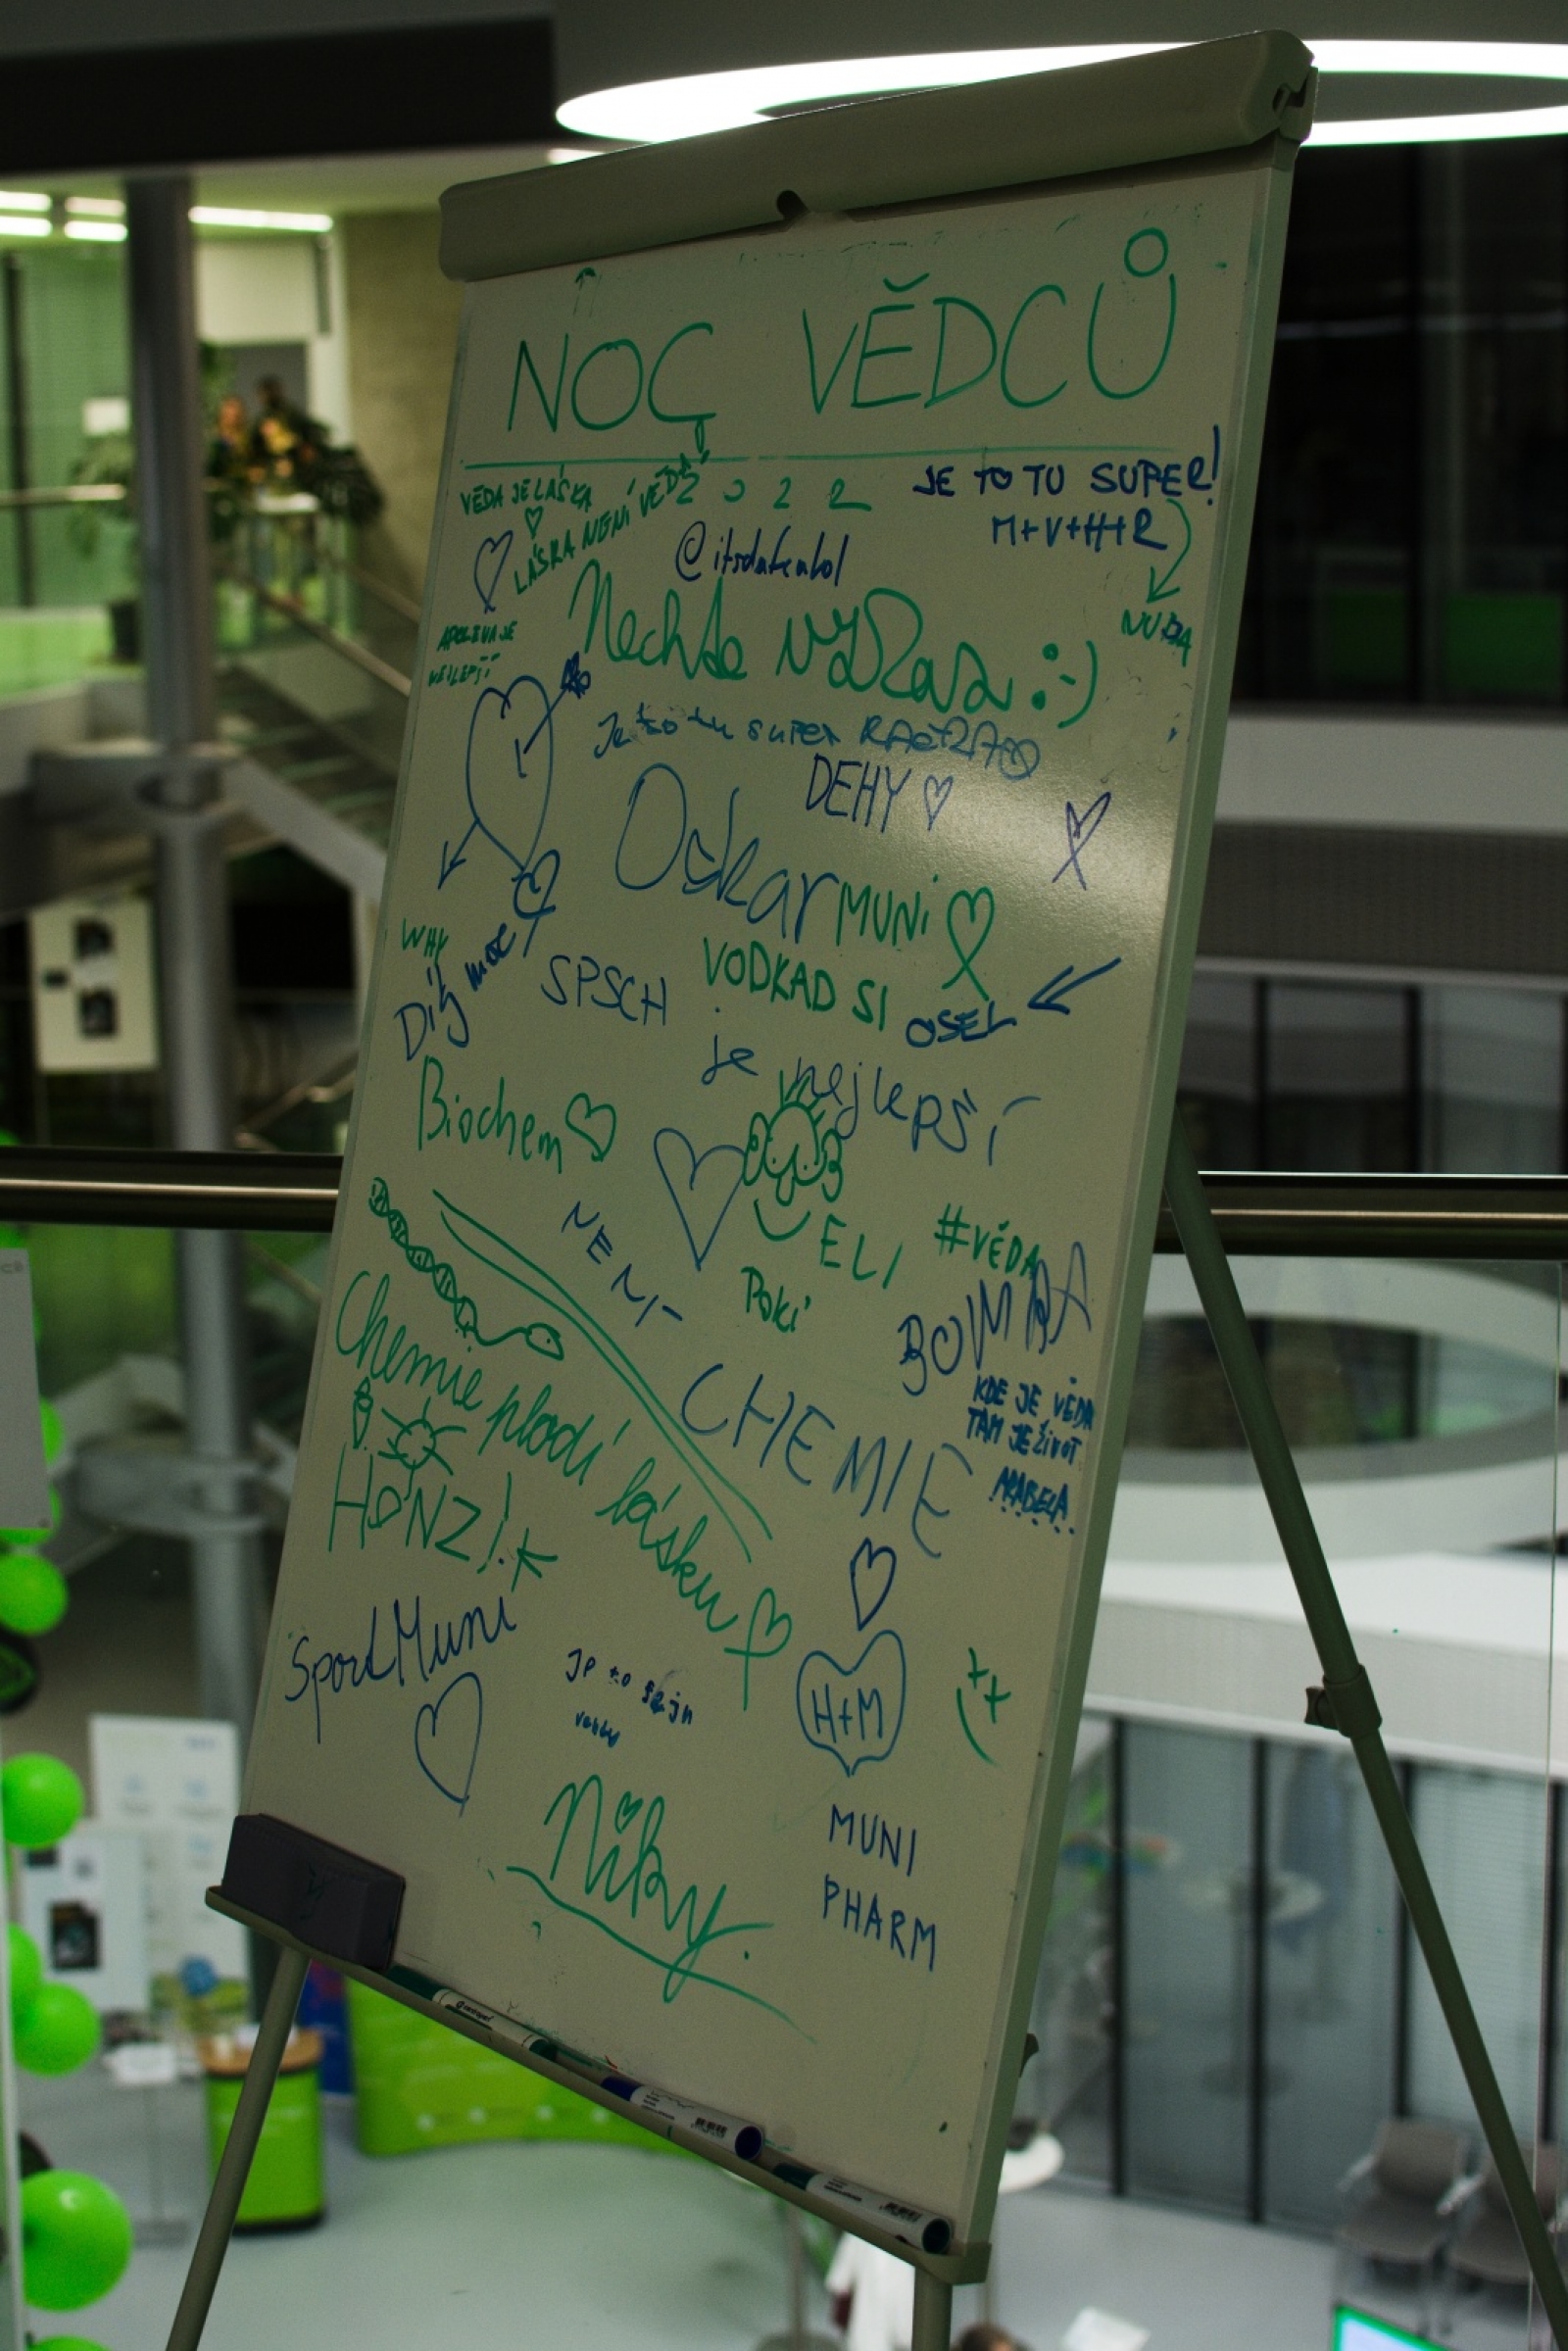 NOC VĚDCŮ
2022
VĚDA JE LÁSKA
LÁSKA NENÍ VĚDA
JE TO TU SUPER!
M+V+H+R
NUDA
Nechte vzkaz :-)
NEJLEPŠÍ
Je to tu super
DEHY
Oskar
MUNI
WHY
Díky moc
SPSCH
VODKAD SI
OSEL
je nejlepší
Biochem
NENÍ
ELI
Poki
#VĚDA
BOMBA
Chemie plodí lásku
CHEMIE
KDE JE VĚDA
TAM JE ŽIVOT
ARABELA
HONZ!
SportMuni
H+M
Niky
MUNI
PHARM